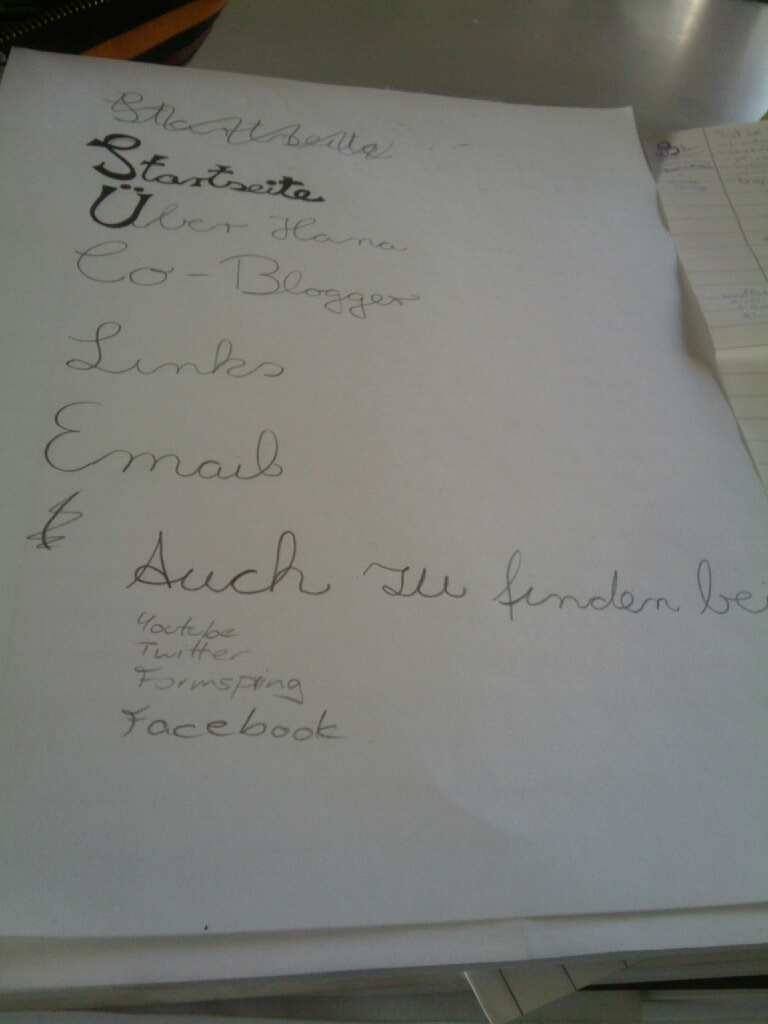 Startseite
Startseite
Über Hana
Co-Blogger
Links
Email
Auch zu finden bei
Youtube
Twitter
Formspring
Facebook